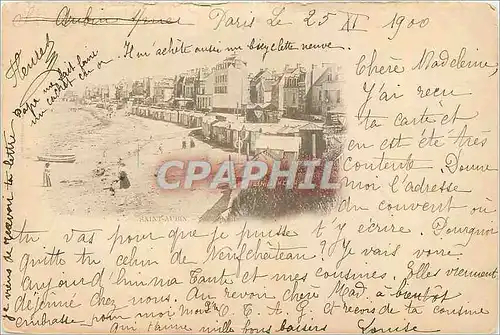 Paris Le 25 XI 1900
Il m'achète aussi une bicyclette neuve.
Chère Madeleine,
J'ai reçu
ta carte et
en ai été très
contente. Donne
moi l'adresse
du couvent où
tu vas pour que je puisse t'y écrire. Pourquoi
quitte tu celui de Neufchateau? Je vais voir
aujourd'hui ma Tante et mes cousines. Elles viennent
déjeuné chez nous. Au revoir chère Mad. à bientôt
embrasse pour moi et reçois de ta cousine
qui t'aime mille bons baisers Louise
Papa me fait faire
un cachet
je viens de recevoir ta lettre
SAINT-AUBIN
CPH